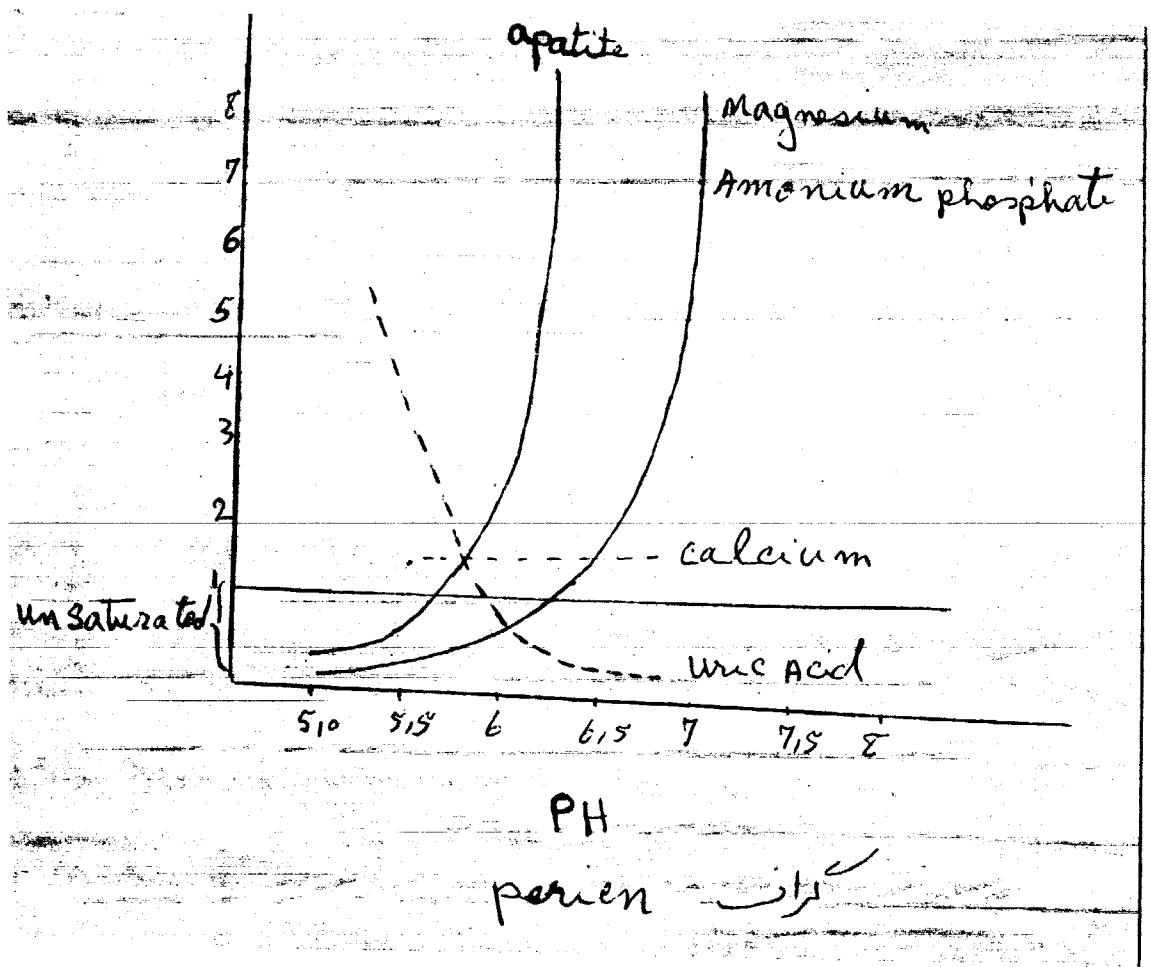 apatite
8
Magnesium
7
Amonium phosphate
6
5
4
3
2
Calcium
1
unsaturated
uric Acid
5,0 5,5 6 6,5 7 7,5 8
PH
perien - گراف